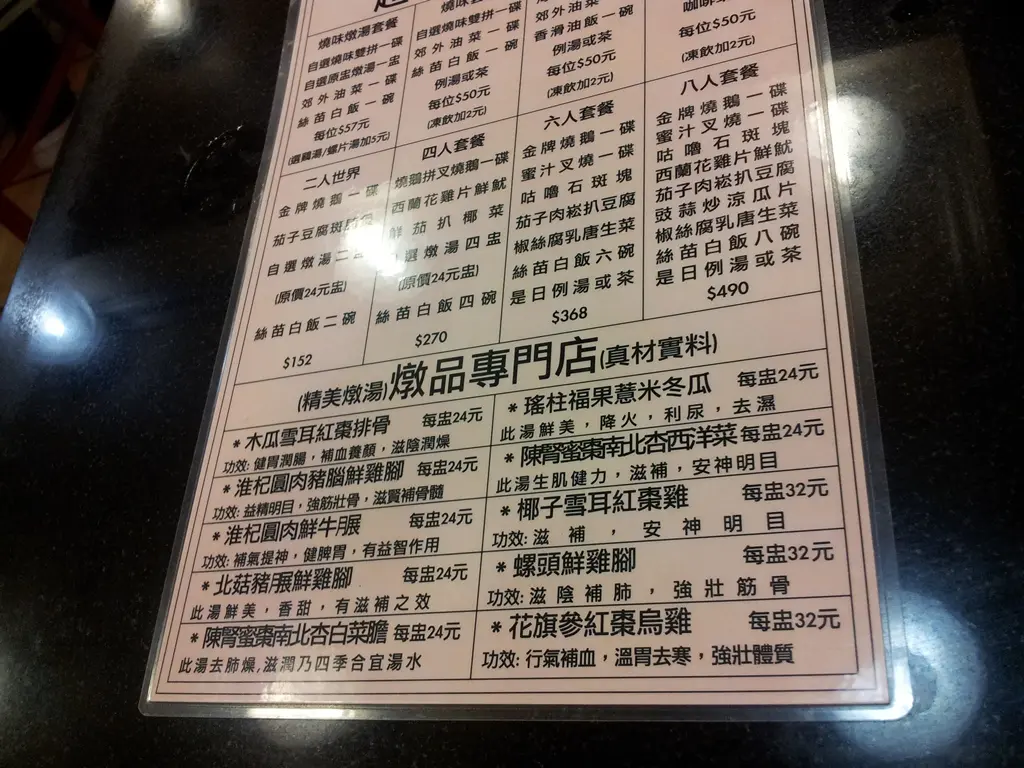 燒味燉湯套餐
自選燒味雙拼一碟
自選原盅燉湯一盅
郊外油菜一碟
絲苗白飯一碗
每位$57元
(選雞湯/螺片湯加5元)
自選燒味雙拼一碟
郊外油菜一碟
絲苗白飯一碗
例湯或茶
每位$50元
(凍飲加2元)
郊外油菜一碟
香滑油飯一碗
例湯或茶
每位$50元
(凍飲加2元)
每位$50元
(凍飲加2元)
二人世界
金牌燒鵝一碟
茄子豆腐斑
自選燉湯二
(原價24元盅)
絲苗白飯二碗
$152
四人套餐
燒鵝拼叉燒鵝一碟
西蘭花雞片鮮魷
鮮茄扒椰菜
選燉湯四盅
(原價24元盅)
絲苗白飯四碗
$270
六人套餐
金牌燒鵝一碟
蜜汁叉燒一碟
咕嚕石斑塊
茄子肉崧扒豆腐
椒絲腐乳唐生菜
絲苗白飯六碗
是日例湯或茶
$368
八人套餐
金牌燒鵝一碟
蜜汁叉燒一碟
咕嚕石斑塊
西蘭花雞片鮮魷
茄子肉崧扒豆腐
豉蒜炒涼瓜片
椒絲腐乳唐生菜
絲苗白飯八碗
是日例湯或茶
$490
(精美燉湯)燉品專門店(真材實料)
*木瓜雪耳紅棗排骨 每盅24元
功效: 健胃潤腸，補血養顏，滋陰潤燥
*淮杞圓肉豬腦鮮雞腳 每盅24元
功效: 益精明目，強筋壯骨，滋賢補骨髓
*淮杞圓肉鮮牛𦟌 每盅24元
功效: 補氣提神，健脾胃，有益智作用
*北菇豬𦟌鮮雞腳 每盅24元
此湯鮮美，香甜，有滋補之效
*陳腎蜜棗南北杏白菜膽 每盅24元
此湯去肺燥,滋潤乃四季合宜湯水
*瑤柱福果薏米冬瓜 每盅24元
此湯鮮美，降火，利尿，去濕
*陳腎蜜棗南北杏西洋菜 每盅24元
此湯生肌健力，滋補，安神明目
*椰子雪耳紅棗雞 每盅32元
功效: 滋補，安神明目
*螺頭鮮雞腳 每盅32元
功效: 滋陰補肺，強壯筋骨
*花旗參紅棗烏雞 每盅32元
功效: 行氣補血，溫胃去寒，強壯體質